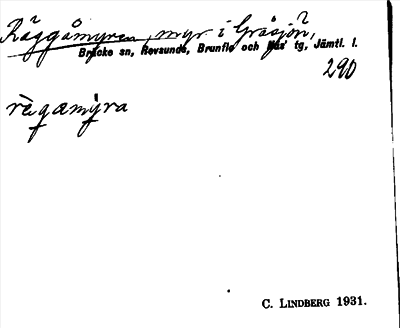 Räggåmyren, myr i Gräsjön,
Bräcke sn, Revsunds, Brunflo och Näs' tg, Jämtl. l.
290
règamy̍ra
C. LINDBERG 1931.